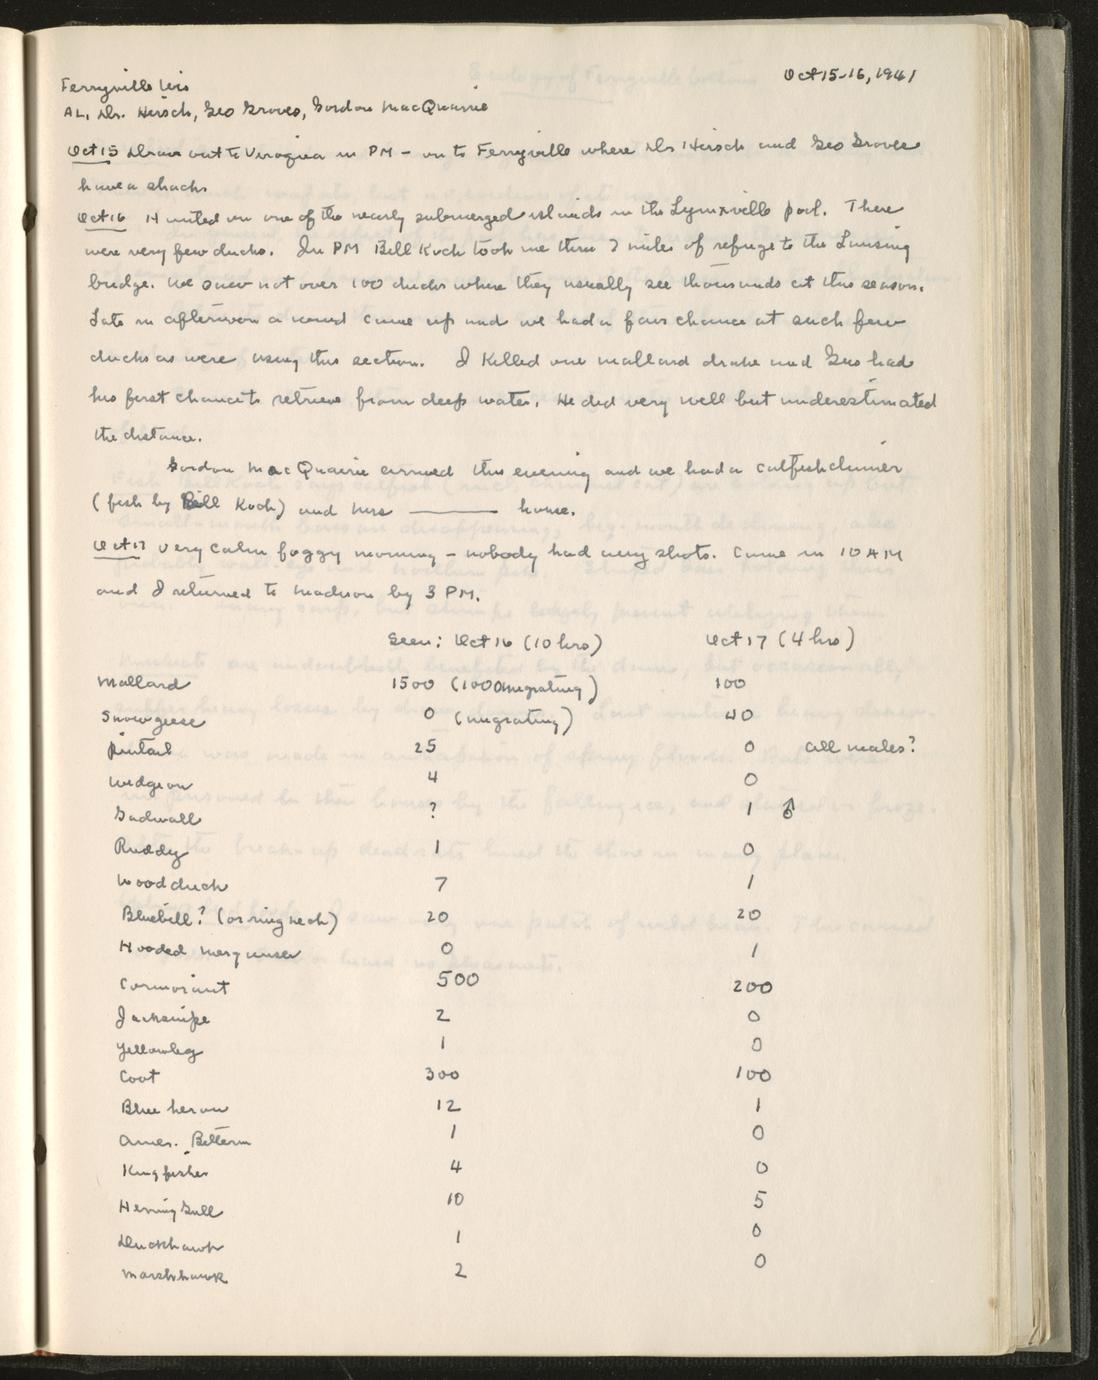 Ferryville Wis Oct 15-16, 1941
AL, Drs. Hirsch, Geo Groves, Gordon MacQuarrie
Oct 15 Drove out to Viroqua in PM - on to Ferryville where Drs Hirsch and Geo Groves
have a shack
Oct 16 Hunted on one of the nearly submerged islands in the Lynxville pool. There
were very few ducks. In PM Bill Koch took me thru 7 miles of refuge to the Lansing
bridge. We saw not over 100 ducks where they usually see thousands at this season.
Late in afternoon a wind came up and we had a fair chance at such few
ducks as were using this section. I killed one mallard drake and Gus had
his first chance to retrieve from deep water. He did very well but underestimated
the distance.
Gordon MacQuarrie arrived this evening and we had a catfish dinner
(fish by Bill Koch) and Mrs ——— house.
Oct 17 Very calm foggy morning - nobody had any shots. Came in 10 AM
and I returned to Madison by 3 PM.
Seen: Oct 16 (10 hrs) Oct 17 (4 hrs)
Mallard 1500 (1000 migrating) 100
Snow geese 0 (migrating) 40
pintail 25 0 all males?
widgeon 4 0
Gadwall ? 1 ♂
Ruddy 1 0
Wood duck 7 1
Bluebill? (or ringneck) 20 20
Hooded merganser 0 1
Cormorant 500 200
Jacksnipe 2 0
Yellowleg 1 0
Coot 300 100
Blue heron 12 1
Amer. Bittern 1 0
Kingfisher 4 0
Herring Gull 10 5
Duckhawk 1 0
Marshhawk 2 0